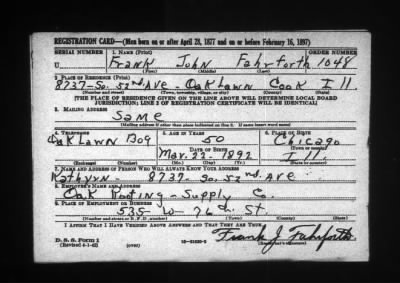 REGISTRATION CARD—(Men born on or after April 28, 1877 and on or before February 16, 1897)
SERIAL NUMBER 1. NAME (Print) ORDER NUMBER
U Frank John Fahrforth 1048
(First) (Middle) (Last)
2. PLACE OF RESIDENCE (Print)
8737-So. 52nd Ave Oak Lawn Cook Ill.
(Number and street) (Town, township, village, or city) (County) (State)
[THE PLACE OF RESIDENCE GIVEN ON THE LINE ABOVE WILL DETERMINE LOCAL BOARD
JURISDICTION; LINE 2 OF REGISTRATION CERTIFICATE WILL BE IDENTICAL]
3. MAILING ADDRESS
Same
[Mailing address if other than place indicated on line 2. If same insert word same]
4. TELEPHONE 5. AGE IN YEARS 6. PLACE OF BIRTH
50 Chicago
Oak Lawn 809 DATE OF BIRTH (Town or county)
Mar. 22. 1892 Ill.
(Exchange) (Number) (Mo.) (Day) (Yr.) (State or country)
7. NAME AND ADDRESS OF PERSON WHO WILL ALWAYS KNOW YOUR ADDRESS
Kathryn 8737-So. 52nd. Ave
8. EMPLOYER'S NAME AND ADDRESS
Oak Roofing-Supply Co.
9. PLACE OF EMPLOYMENT OR BUSINESS
535 W- 76th. St.
(Number and street or R. F. D. number) (Town) (County) (State)
I AFFIRM THAT I HAVE VERIFIED ABOVE ANSWERS AND THAT THEY ARE TRUE.
D. S. S. Form 1
(Revised 4-1-42) (over) Frank J Fahrforth
(Registrant's signature)